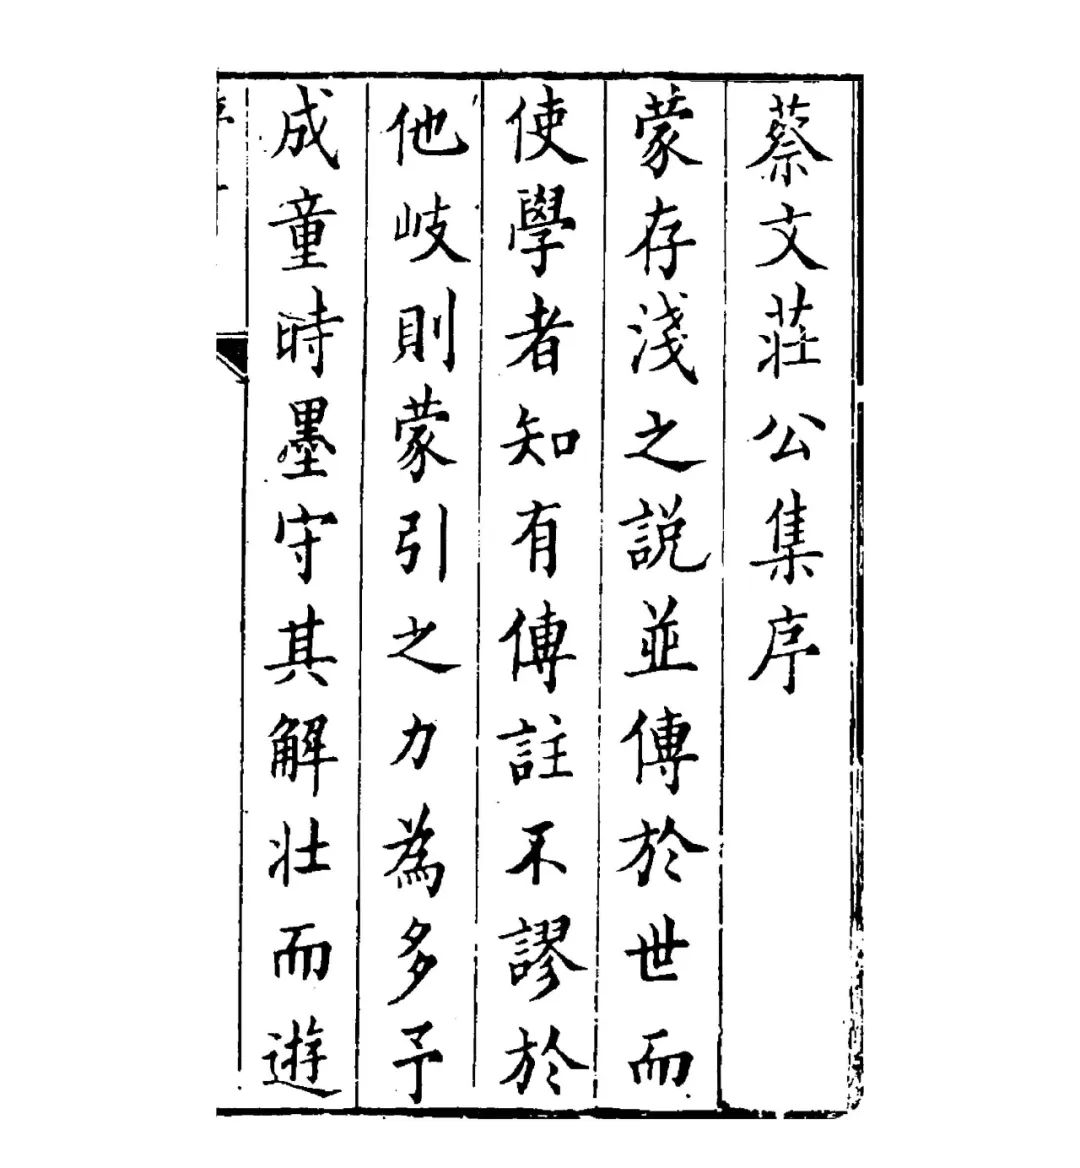 蔡文莊公集序
蒙存淺之説並傳於世而
使學者知有傳註不謬於
他岐則蒙引之力為多予
成童時墨守其解壯而遊